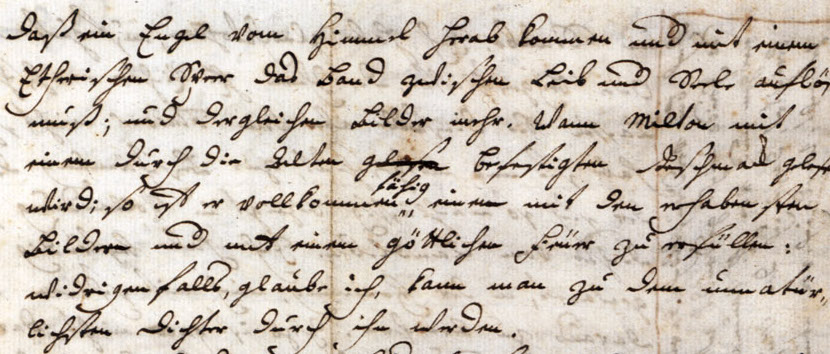 daß ein Engel vom Himmel herab kommen und mit einem
Etherischen Speer das Band zwischen Leib und Seele auflö-
muß; und dergleichen Bilder mehr. Wann Milton mit
einem durch die Alten befestigten Geschmak gelesen
wird; so ist er vollkommen fähig einen mit den erhabensten
Bildern und mit einem göttlichen Feüer zu erfüllen:
widrigenfalls, glaube ich, kann man zu dem unnatür-
lichsten Dichter durch ihn werden.